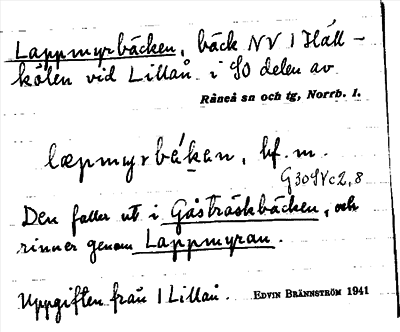 Lappmyrbäcken, bäck NV I Häll-
kölen vid Lillån i SO delen av
Råneå sn och tg, Norrb. l.
læpmyrbékan, bf. m.
G30SVc2,8
Den faller ut i Gåsträskbäcken, och
rinner genom Lappmyran.
Uppgiften från I Lillån. EDVIN BRÄNNSTRÖM 1941